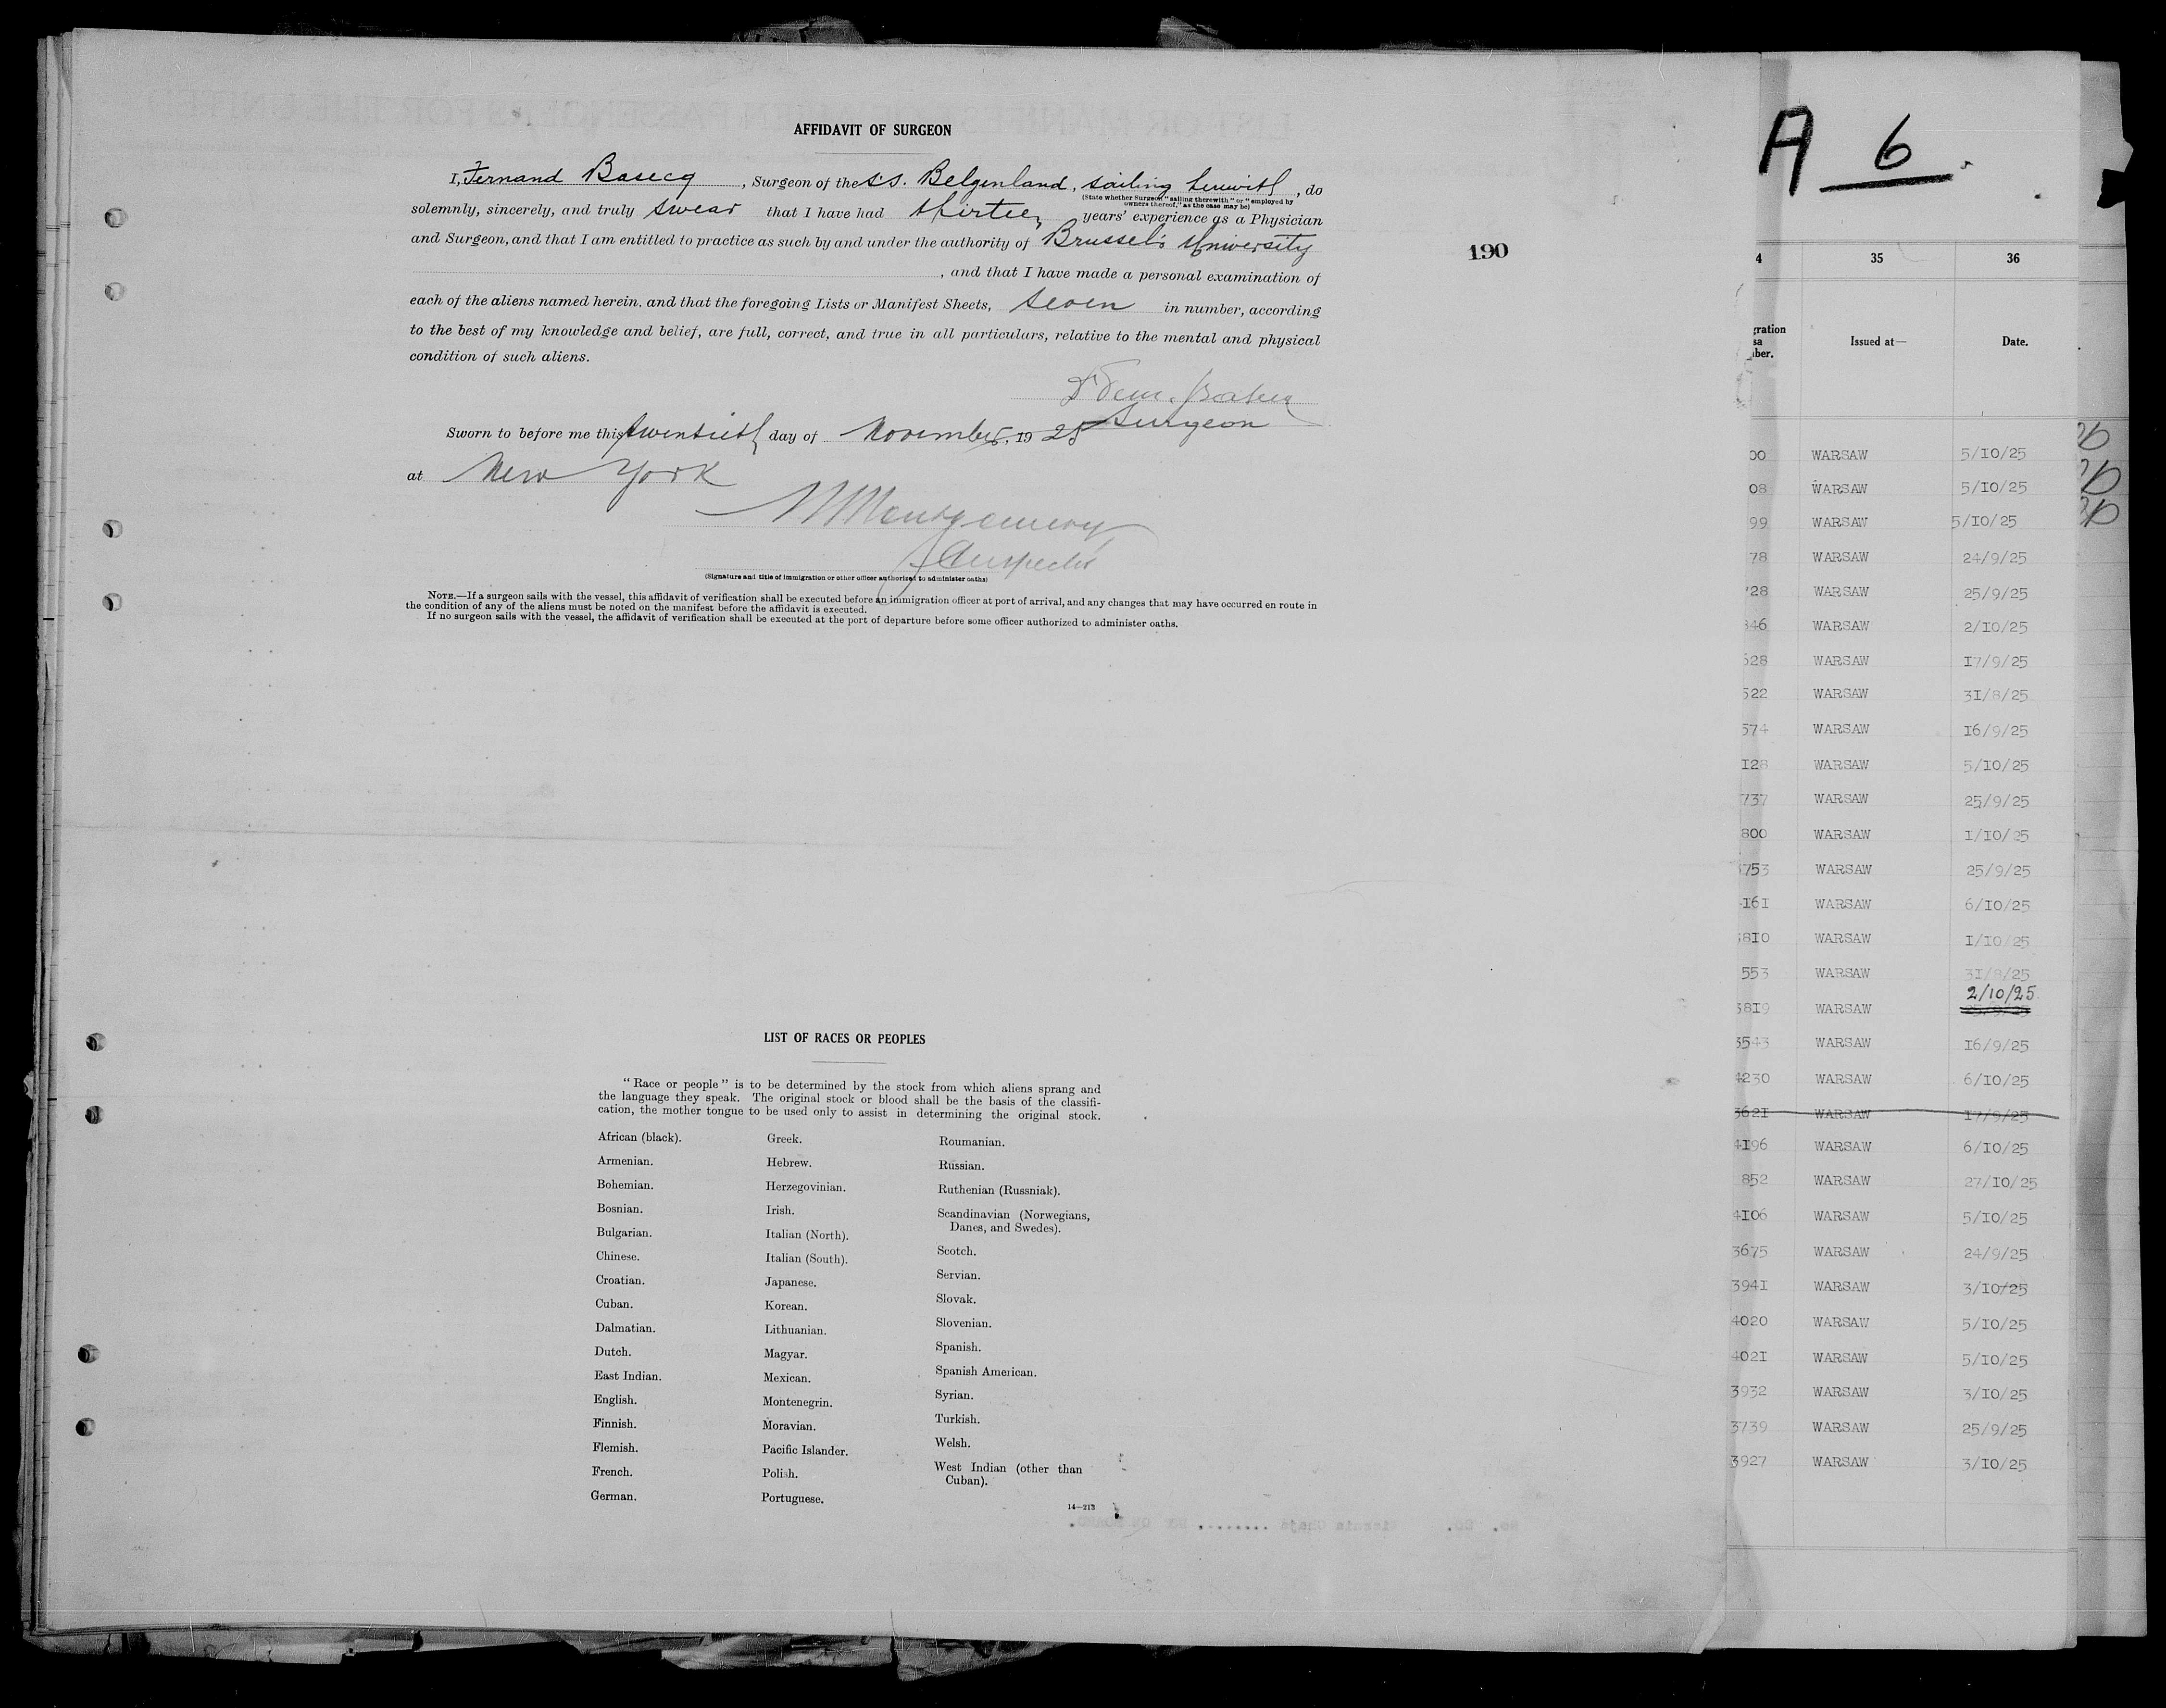 AFFIDAVIT OF SURGEON
I, Fernand Basecq, Surgeon of the S.S. Belgenland, sailing herewith, do
(State whether Surgeon "sailing therewith" or "employed by
owners thereof," as the case may be)
solemnly, sincerely, and truly swear that I have had thirteen years' experience as a Physician
and Surgeon, and that I am entitled to practice as such by and under the authority of Brussels University
, and that I have made a personal examination of
each of the aliens named herein, and that the foregoing Lists or Manifest Sheets, seven in number, according
to the best of my knowledge and belief, are full, correct, and true in all particulars, relative to the mental and physical
condition of such aliens.
Surgeon
Sworn to before me this twentieth day of November, 1925
at New York
Montgomery
Inspector
(Signature and title of immigration or other officer authorized to administer oaths)
NOTE.—If a surgeon sails with the vessel, this affidavit of verification shall be executed before an immigration officer at port of arrival, and any changes that may have occurred en route in
the condition of any of the aliens must be noted on the manifest before the affidavit is executed.
If no surgeon sails with the vessel, the affidavit of verification shall be executed at the port of departure before some officer authorized to administer oaths.
190
LIST OF RACES OR PEOPLES
"Race or people" is to be determined by the stock from which aliens sprang and
the language they speak. The original stock or blood shall be the basis of the classifi-
cation, the mother tongue to be used only to assist in determining the original stock.
African (black).
Armenian.
Bohemian.
Bosnian.
Bulgarian.
Chinese.
Croatian.
Cuban.
Dalmatian.
Dutch.
East Indian.
English.
Finnish.
Flemish.
French.
German.
Greek.
Hebrew.
Herzegovinian.
Irish.
Italian (North).
Italian (South).
Japanese.
Korean.
Lithuanian.
Magyar.
Mexican.
Montenegrin.
Moravian.
Pacific Islander.
Polish.
Portuguese.
Roumanian.
Russian.
Ruthenian (Russniak).
Scandinavian (Norwegians,
Danes, and Swedes).
Scotch.
Servian.
Slovak.
Slovenian.
Spanish.
Spanish American.
Syrian.
Turkish.
Welsh.
West Indian (other than
Cuban).
14—213
A 6
4 35 36
gration
sa
ber.
Issued at—
Date.
00 WARSAW 5/10/25
08 WARSAW 5/10/25
99 WARSAW 5/10/25
78 WARSAW 24/9/25
728 WARSAW 25/9/25
846 WARSAW 2/10/25
628 WARSAW 17/9/25
522 WARSAW 31/8/25
574 WARSAW 16/9/25
128 WARSAW 5/10/25
737 WARSAW 25/9/25
800 WARSAW 1/10/25
753 WARSAW 25/9/25
4161 WARSAW 6/10/25
3810 WARSAW 1/10/25
553 WARSAW 31/8/25
2/10/25
3819 WARSAW 25/9/25
3543 WARSAW 16/9/25
4230 WARSAW 6/10/25
3621 WARSAW 17/9/25
4196 WARSAW 6/10/25
852 WARSAW 27/10/25
4106 WARSAW 5/10/25
3675 WARSAW 24/9/25
3941 WARSAW 3/10/25
4020 WARSAW 5/10/25
4021 WARSAW 5/10/25
3932 WARSAW 3/10/25
3739 WARSAW 25/9/25
3927 WARSAW 3/10/25